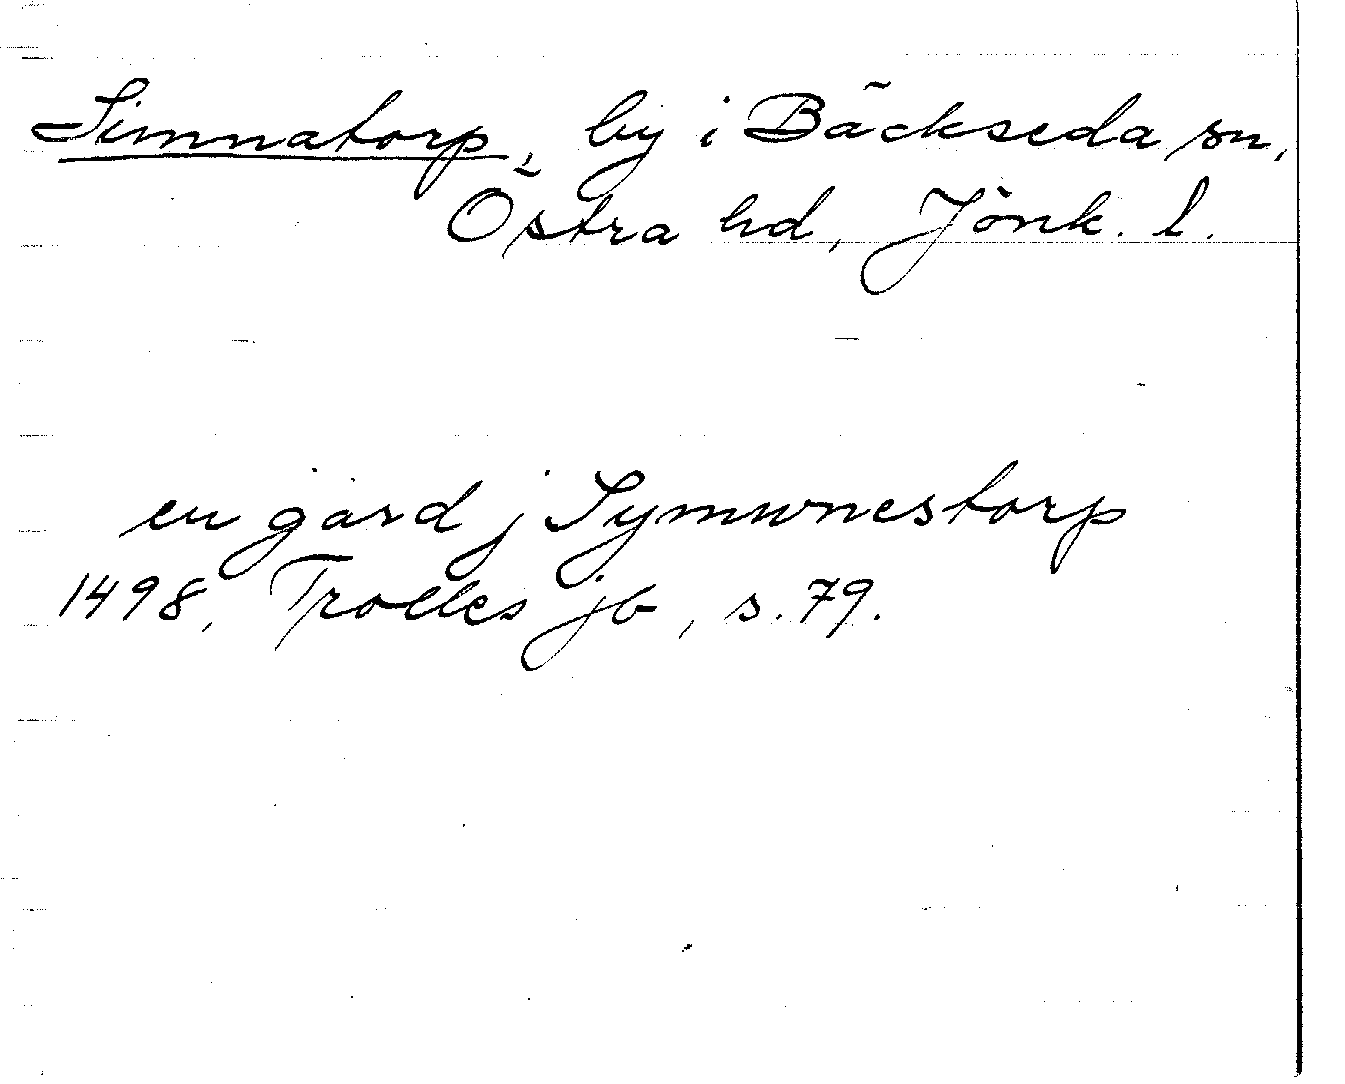 Simnatorp, by i Bäckseda sn,
Östra hd, Jönk. l.
en gård j Symwnestorp
1498, Trolles jb, s. 79.